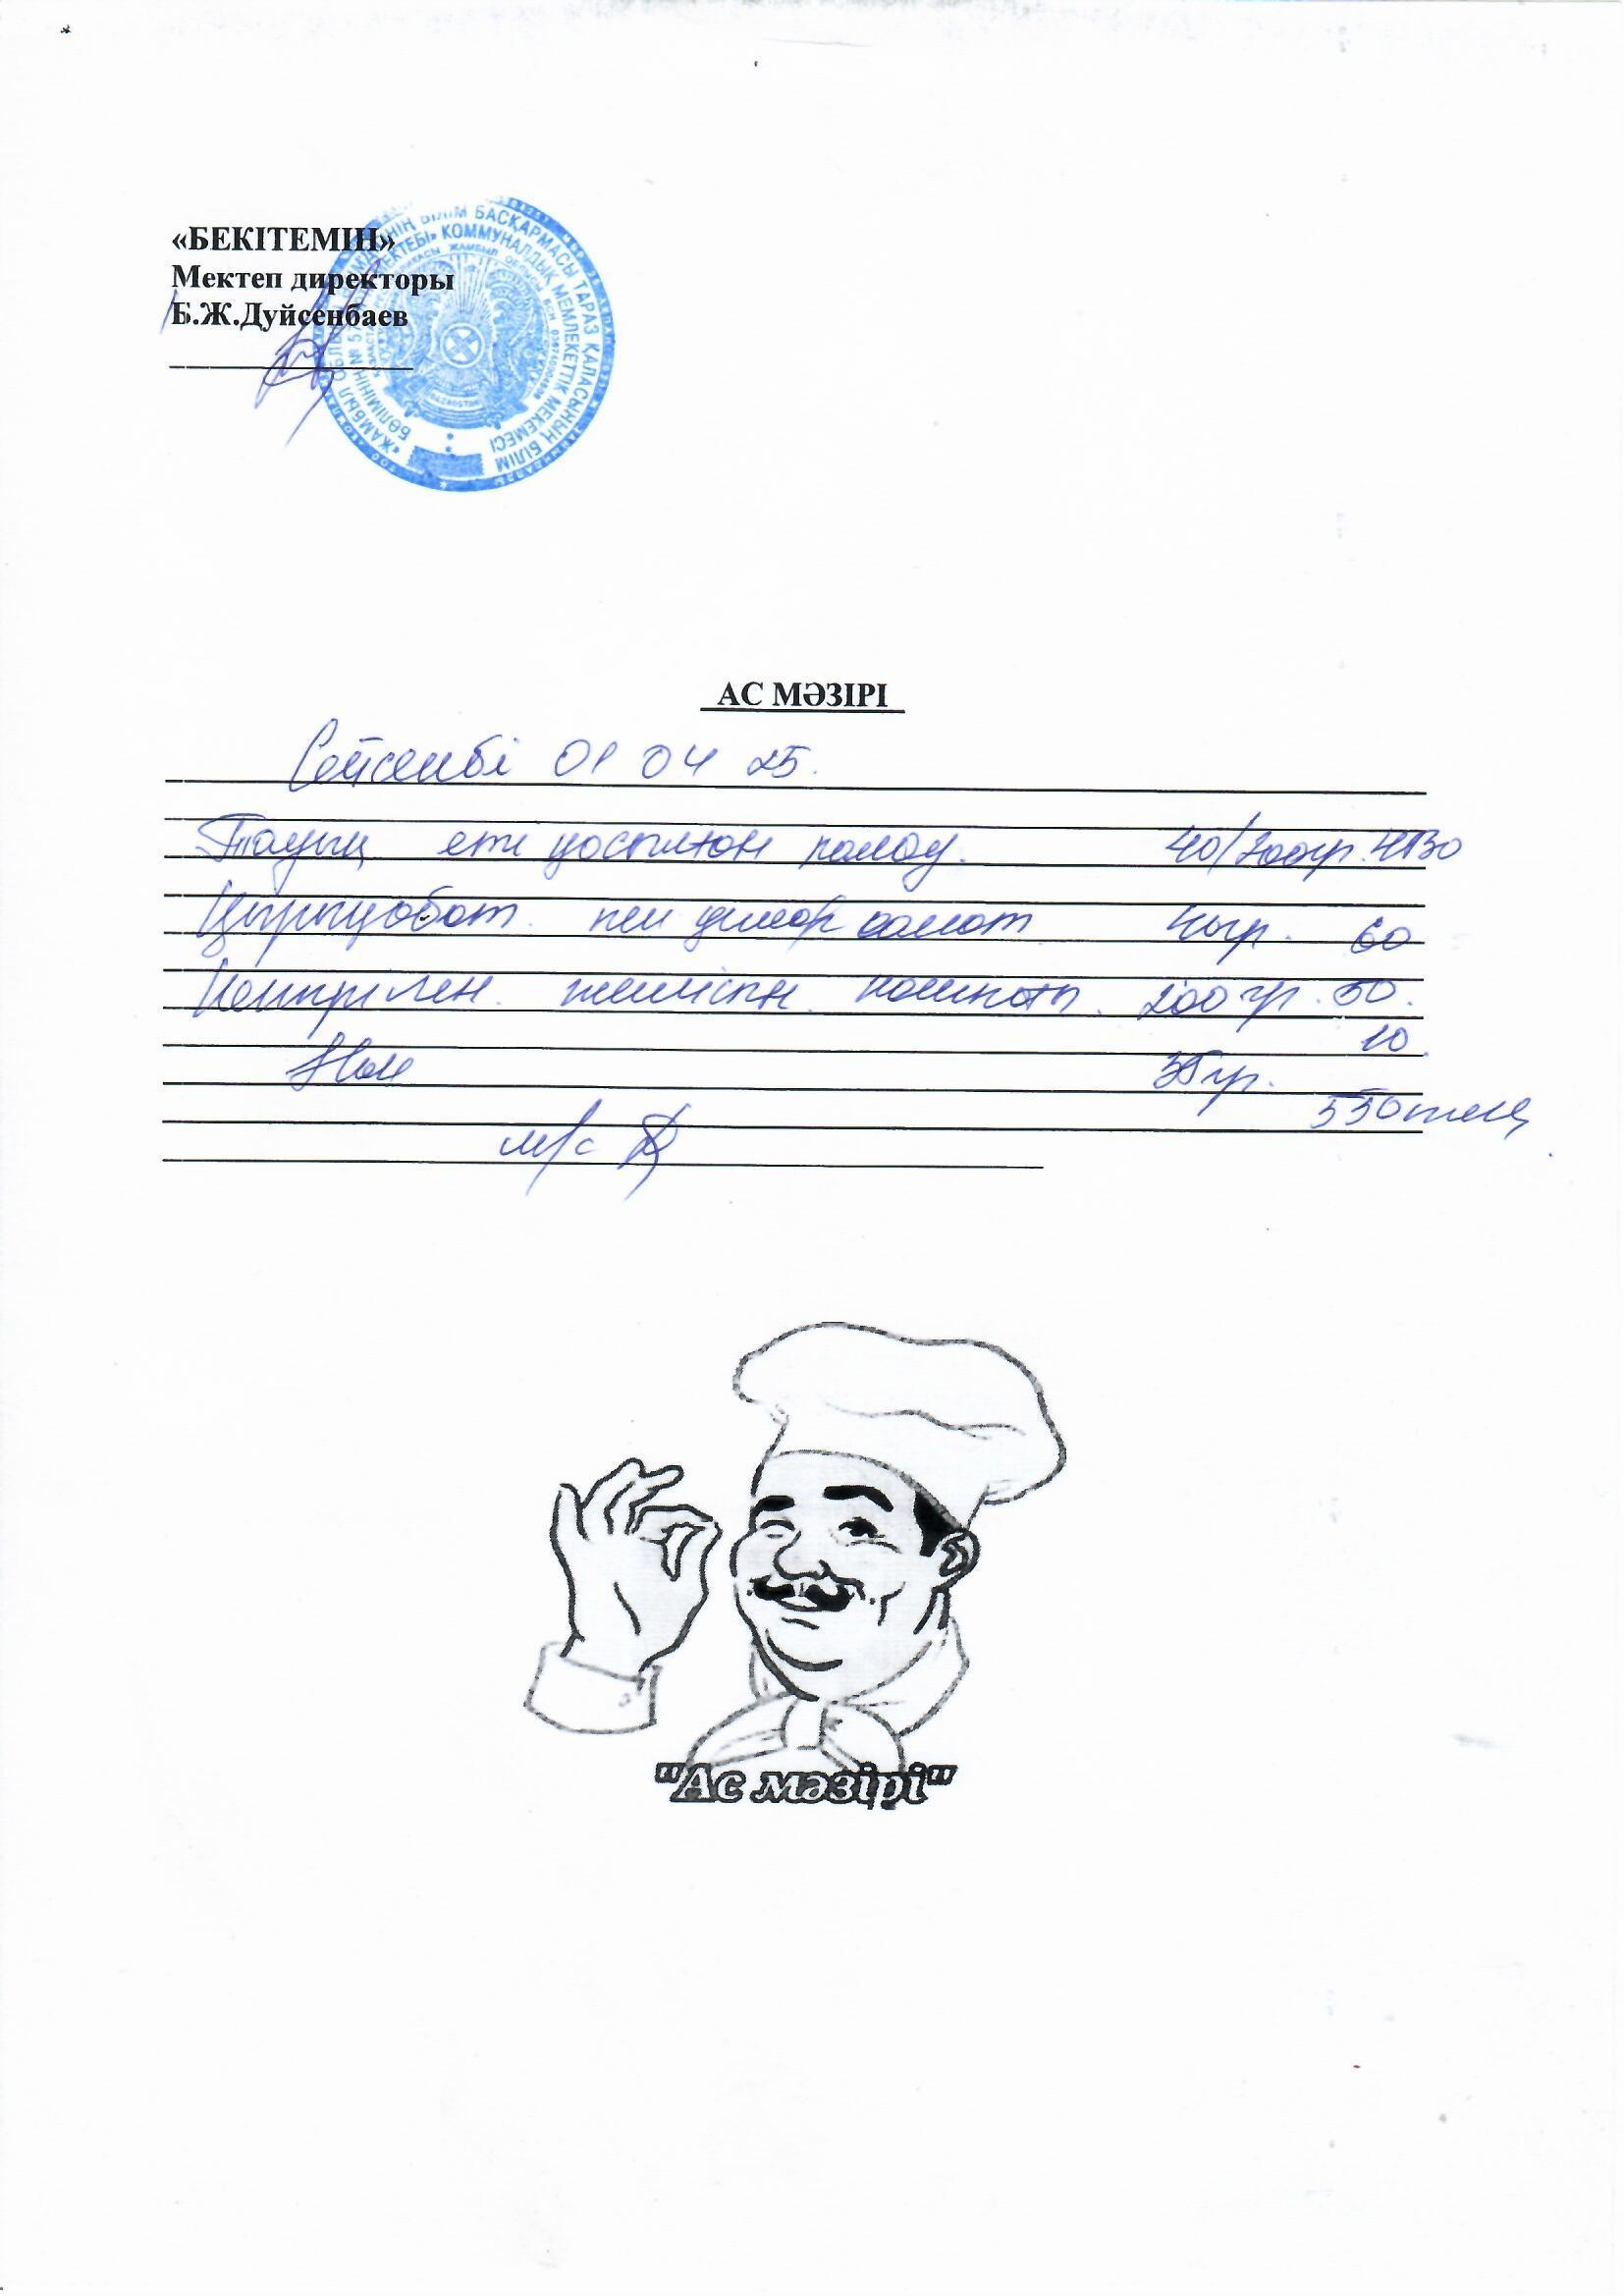 «БЕКІТЕМІН»
Мектеп директоры
Б.Ж.Дуйсенбаев
БІЛІМ БАСҚАРМАСЫ ТАРАЗ ҚАЛАСЫНЫҢ БІЛІМ
БӨЛІМІНІҢ № 5 МЕКТЕБІ» КОММУНАЛДЫҚ МЕМЛЕКЕТТІК МЕКЕМЕСІ
АС МӘЗІРІ
Сейсенбі 01 04 25.
Тауық еті қосылған палау. 40/200гр. 430
Қырыққабат пен салат гр. 60
Кептірілген жемісін компоты. 200 гр. 50.
10.
Нан 35гр.
550тең
м/с
"Ас мәзірі"